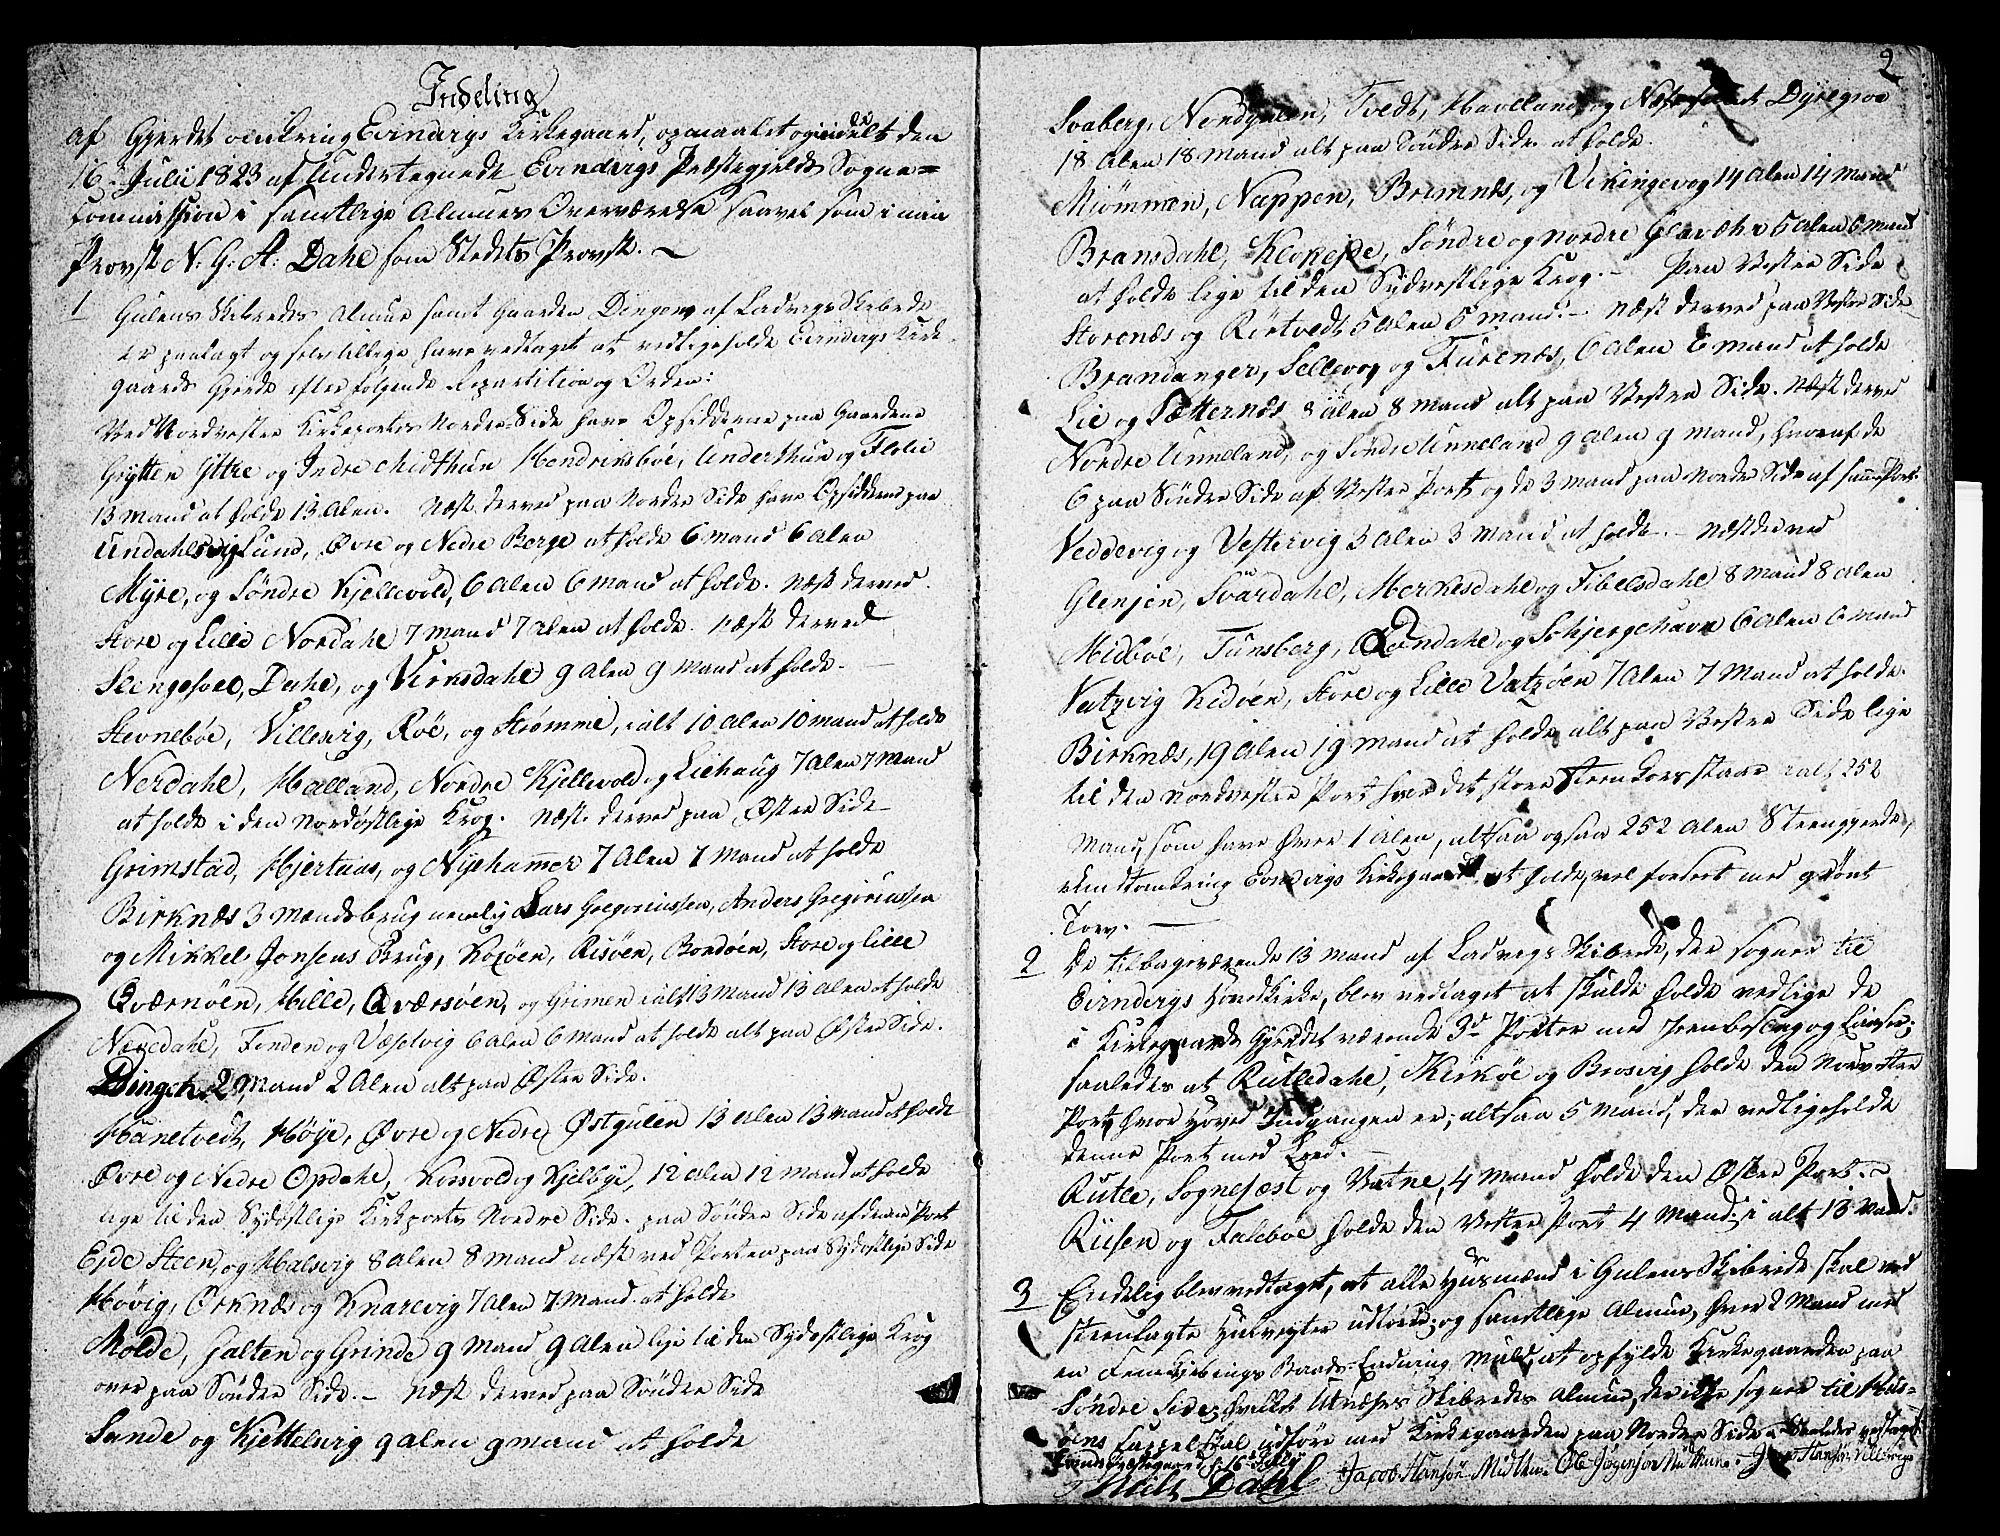 Indeling
af Gjerdet omkring Evindvigs Kirkegaard, opmaalet og inddelt den
16de Julii 1823 af Undertegnede Evindvigs Præstegjelds Sogne=
Commission i samtlige Almues Overværelse saavel som i min
Provst N: G: A: Dahl som Stedets Provst. ~
1 Gulens Skibredes Almue samt Gaarden Dingen af Ladvigs Skibrede
er paalagt og selv tillige have vedtaget at vedligeholde Evindvigs Kirke
gaards Gjerde efter følgende Repartition og Orden:
Ved Nordvestre Kirkeportes Nordre Side have Opsidderne paa Gaardene
Grytten Yttre og Indre Midthun Hendriksbøe, Underthun og Flolie
13 Mand at holde 13 Alen. Næst derved paa Nordre Side have Opsidderne paa
Undahlsvig Lund, Øvre og Nedre Berge at holde 6 Mand 6 Alen
Myre, og Søndre Kjellevold, 6 Alen 6 Mand at holde. Næst derved
Store og Lille Nordahl 7 Mand 7 Alen at holde. Næst derved
Slengesoel, Dahl, og Virksdahl 9 Alen 9 Mand at holde. —
Stevnebøe, Villesvig, Røe, og Strømme, i alt 10 Alen 10 Mand at holde
Nerdahl, Halland, Nordre Kjellevold og Liehaug 7 Alen 7 Mand
at holde i den Nordøstlige Krog. Næst derved paa Østre Side
Grimstad, Hjertaas, og Nyehammer 7 Alen 7 Mand at holde
Birknæs 3 Mands brug nemlig Lars Gregoriussen, Anders Gregoriussen
og Mikkel Jonsens Brug, Koxøen, Risøen, Bordøen, Store og Lille
Qværnøen, Hille, Qværsøen, og Grimen i alt 13 Mand 13 Alen at holde
Nævedahl, Fonden og Væselvig 6 Alen 6 Mand at holde alt paa Østre Side.
Dingen 2 Mand 2 Alen alt paa Østre Side.
Hanetvedt, Høye, Øvre og Nedre Østgulen 13 Alen 13 Mand at holde
Øvre og Nedre Opdahl, Korsvold og Kjelbye, 12 Alen 12 Mand at holde
lige til den Sydøstlige Kirkeports Nordre Side. paa Søndre Side af denne Port
Eide Steen, og Halsvig 8 Alen 8 Mand næst ved Porten paa Sydøstlige Side
Høvig, Ørknæs og Knarevig 7 Alen 7 Mand at holde
Molde, Halten og Grinde 9 Mand 9 Alen lige til den Sydøstlige Krog
over paa Søndre Side. — Næst derved paa Søndre Side
Sande og Kjettelsvig 9 Alen 9 Mand at holde
2
Svaberg, Nordgulen, Tvedt, Havelland og Næse samt Dyregrov
18 Alen 18 Mand alt paa Søndre Side at holde.
Miømmen, Næppen, Bremnæs, og Vikingevog 14 Alen 14 Mand
Bransdahl, Klokeide, Søndre og Nordre Glavæhr 5 Alen 6 Mand
at holde lige til den Sydvestlige Krog. — Paa Vestre Side
Storenæs og Riætvedt 5 Alen 5 Mand. — Næst derved paa Vestre Side
Brandanger, Sellevog og Furenæs, 6 Alen 6 Mand at holde
Lie og Sætternes 8 Alen 8 Mand alt paa Vestre Side. Næst derved
Nordre Unneland, og Søndre Unneland 9 Alen 9 Mand, hvoraf de
6 paa Søndre Side af Vestre Port og de 3 Mand paa Nordre Side af samme Port.
Veddevig og Vestervig 3 Alen 3 Mand at holde. — Næst derved
Glenjen, Svardahl, Merkesdahl og Tibelsdahl 8 Mand 8 Alen
Midbøe, Tunsberg, Qvindahl og Schjergehavn 6 Alen 6 Mand
Vatzvig Kidøen, Store og Lille Vatzøen 7 Alen 7 Mand at holde.
Birknæs, 19 Alen 19 Mand at holde alt paa Vestre Side lige
til den Nordvestre Port hvor det store Steen Kors staar i alt 252
Mand, som have hver 1 Alen, altsaa ogsaa 252 Alen Steengjerde,
rundt omkring Evindvigs Kirkegaard at holde, vel forsert med grønt
Torv. —
2 De tilbageværende 13 Mand af Ladvigs Skibrede, der sogner til
Evindvigs Hovedkirke, blev vedtaget at skulde holde vedlige de
i Kirkegaards Gjerdet værende 3de Porter med Jernbeslag og Laaser;
saaledes at Rutledahl, Kirkøe og Brosvig holde den Nordvestre
Port hvor Hoved Indgangen er; altsaa 5 Mand, der vedligeholde
denne Port med Leed. —
Rutle, Sognefæst og Vatne, 4 Mand holde den Østre Port. ~
Riisen og Falebøe holde den Vestre Port 4 Mand; i alt 13 Mand.
3 Endelig blev vedtaget, at alle Huusmænd i Gulens Skibrede skal ved
steenlagte Hulveyter udtørre; og samtlige Almue, hver 2 Mand med
en Femkebings Baads Ladning Muld, at opfylde Kirkegaarden paa
Søndre Side; hvilket Utvæhrs Skibredes Almue, der ikke sogner til Hus-
øens Cappel skal udføre med Kirkegaarden paa Nordre Side. Saaledes vedtaget
Evindvigs Præstegaard d: 16de July
Niels Dahl Jacob Hansøn Midthun. Ole Jøgensøn Midthun. Hansøn Villesvig